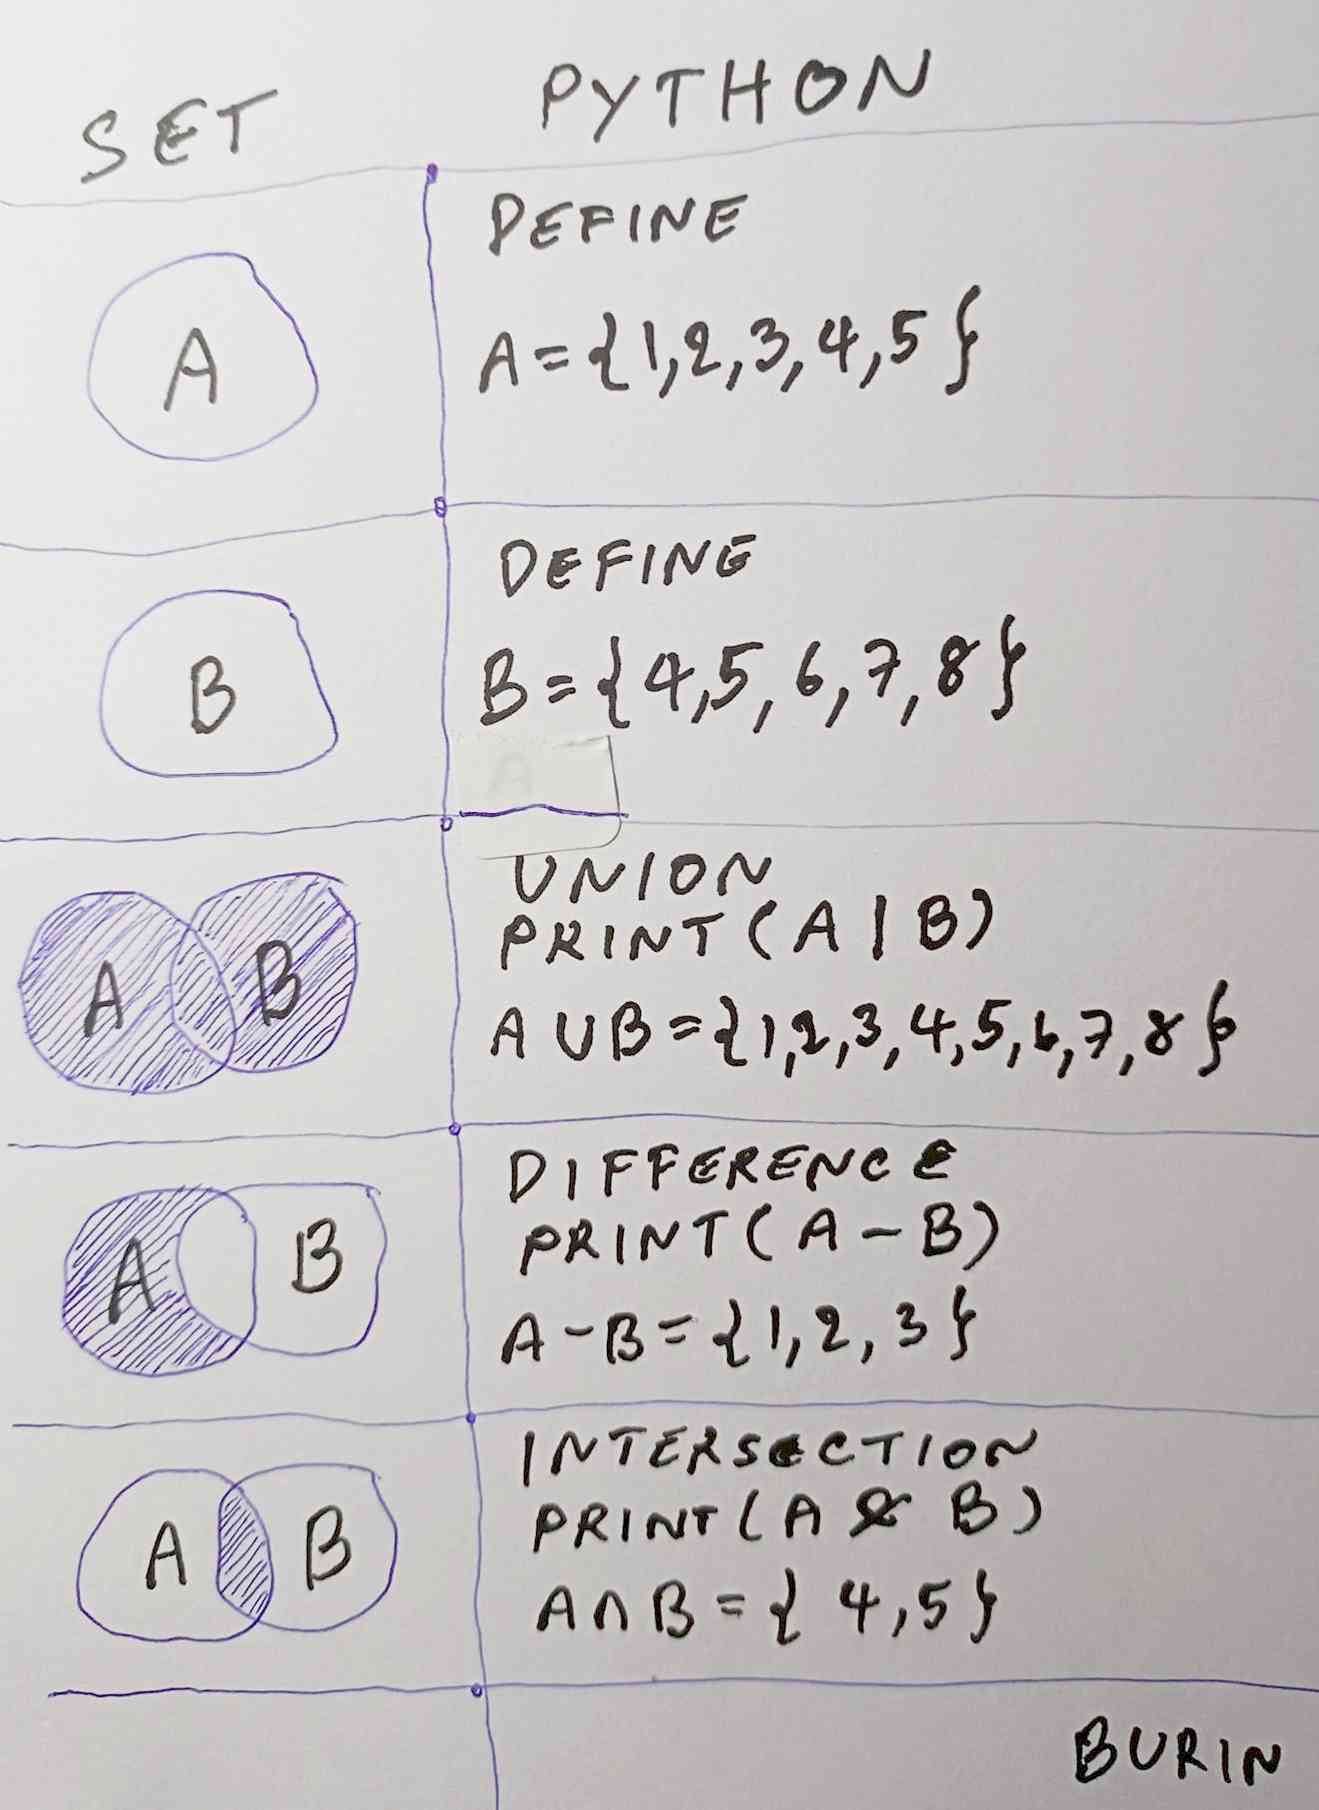 SET
PYTHON
A
DEFINE
A={1,2,3,4,5}
B
DEFINE
B={4,5,6,7,8}
A
A B
UNION
PRINT(A|B)
A∪B={1,2,3,4,5,6,7,8}
A B
DIFFERENCE
PRINT(A-B)
A-B={1,2,3}
A B
INTERSECTION
PRINT(A & B)
A∩B={4,5}
BURIN